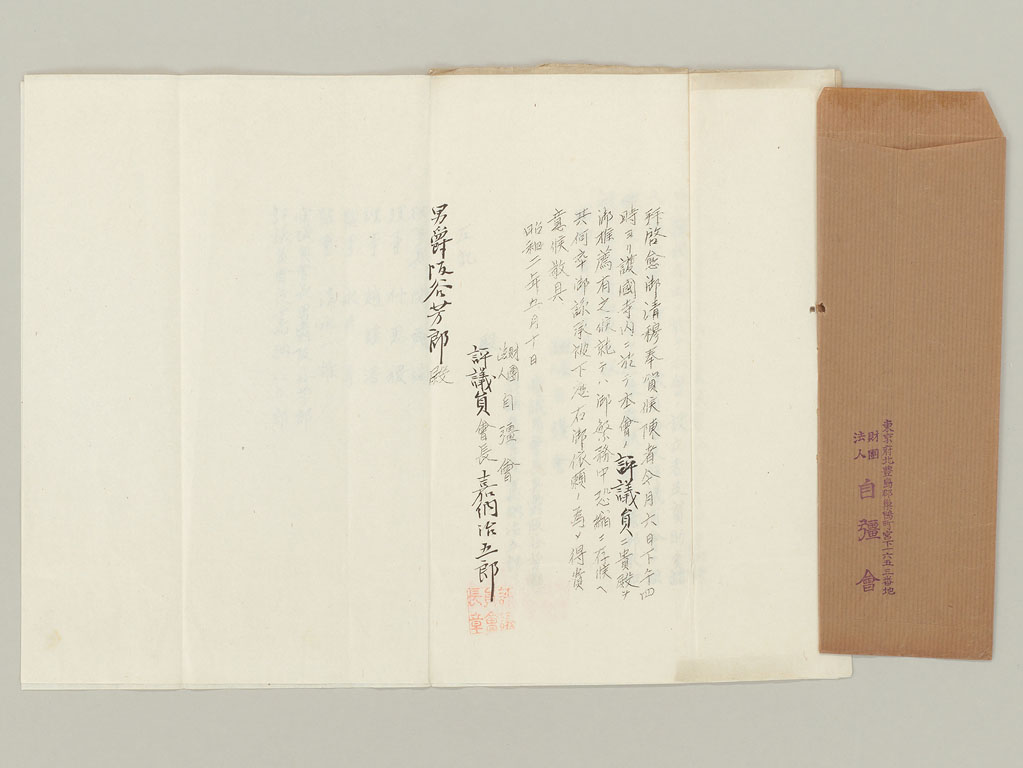 拝啓愈御清穆奉賀候陳者今月六日下午四
時ヨリ護國寺内ニ於テ本會ノ評議員ニ貴殿ヲ
御推薦有之候就テハ御繁務中恐縮ニ存候ヘ
共何卒御諒承被下度右御依頼ノ為メ得貴
意候敬具
昭和二年五月十日
財團法人自彊會
評議員會長嘉納治五郎
評議員會長章
男爵阪谷芳郎殿
東京府北豊島郡巣鴨町宮下一六五三番地
財團法人自彊會